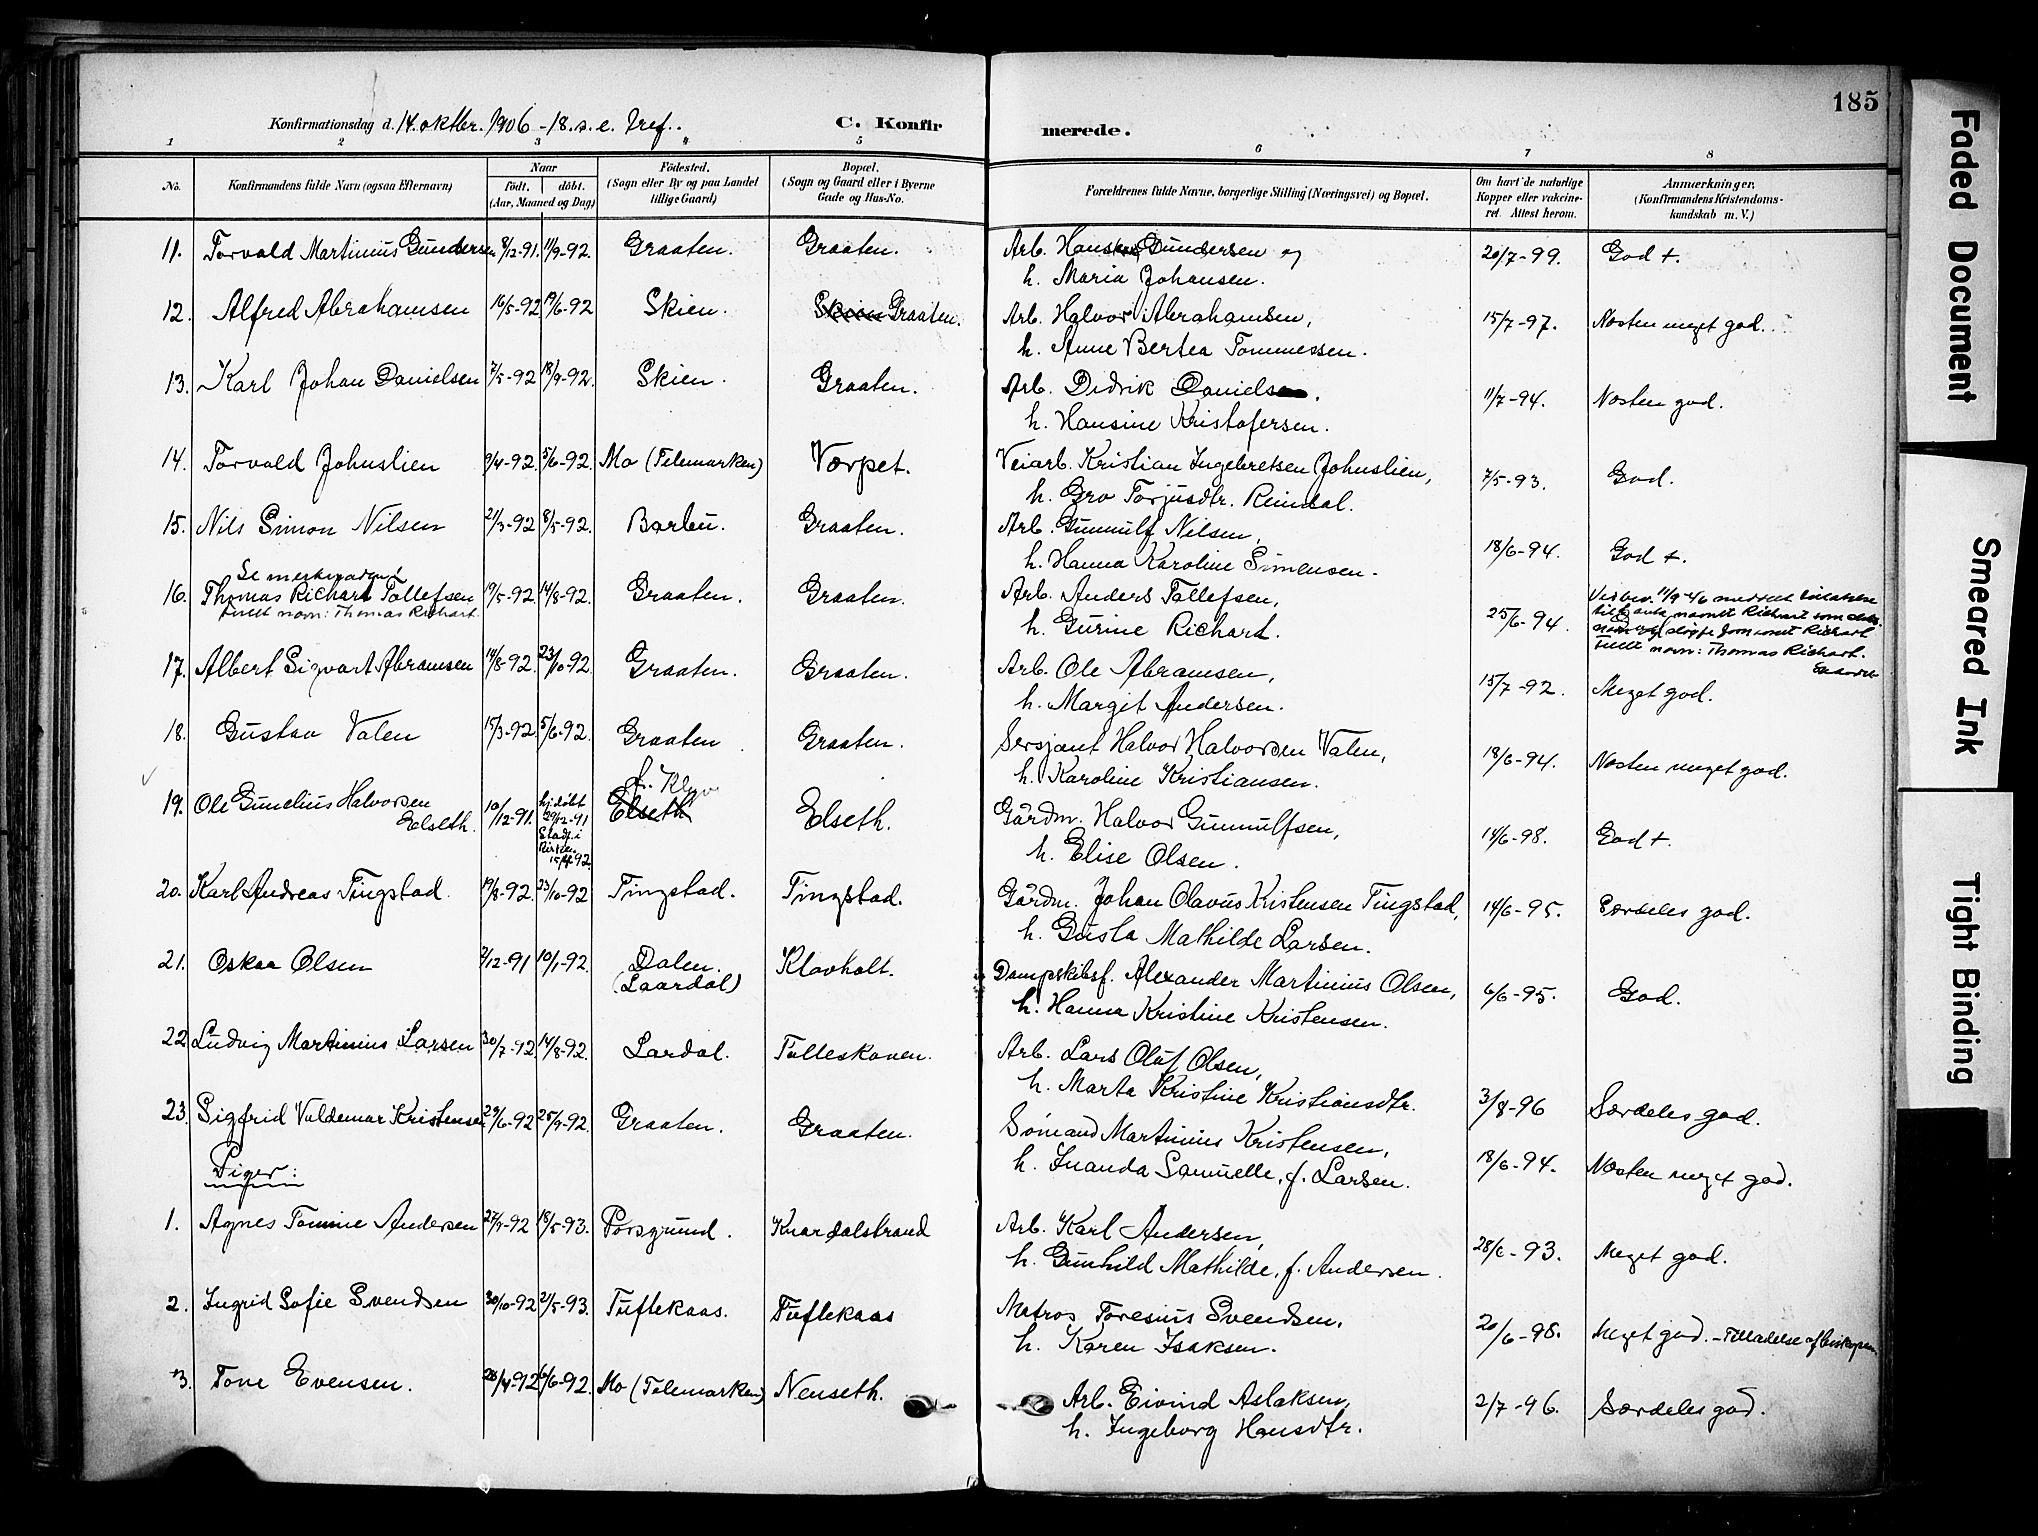 185
Konfirmationsdag d. 14. oktbr. 1906 - 18. s. e. Tref.. C. Konfirmerede.
1 2 3 4 5 6 7 8
No. Konfirmandens fulde Navn (ogsaa Efternavn) Naar födt. döbt. (Aar, Maaned og Dag) Födested. (Sogn eller By og paa Landet tillige Gaard) Bopæl. (Sogn og Gaard eller i Byerne Gade og Hus-No. Forældrenes fulde Navne, borgerlige Stilling (Næringsvei) og Bopæl. Om havt de naturlige Kopper eller vaccineret. Attest herom. Anmærkninger, (Konfirmandens Kristendomskundskab m. V.)
11. Torvald Martinius Gundersen 8/12-91. 11/9-92. Graaten. Graaten. Arb. Hans Gundersen og 20/7-99. God +.
h. Maria Johansen.
12. Alfred Abrahamsen 16/5-92 19/6-92 Skien. Skien Graaten. Arb. Halvor Abrahamsen, 15/7-97. Næsten meget god.
h. Anne Bertea Tommessen.
13. Karl Johan Danielsen 7/5-92 18/9-92. Skien. Graaten. Arb. Didrik Daniels 11/7-94. Næsten god.
h. Hansine Kristofersen.
14. Torvald Johnslien 9/4-92. 5/6-92. Mo (Telemarken) Værpet. Veiarb. Kristian Ingebretsen Johnslien, 7/5-93. God.
h. Gro Torjusdtr. Reindal.
15. Nils Simon Nilsen 21/3-92 8/5-92. Barbu. Graaten. Arb. Gunnulf Nilsen, 18/6-94. God +.
h. Hanna Karoline Simensen.
Se merknaden!
16. Thomas Richart Tollefsen 19/5-92. 14/8-92. Graaten. Graaten. Arb. Anders Tollefsen, 25/6-94.
fullt navn: Thomas Richart. h. Gurine Richart.
navnet Richart som
Richart
Fullt navn: Thomas Richart.
17. Albert Sigvart Abramsen 14/8-92. 23/10-92. Graaten. Graaten. Arb. Ole Abramsen, 15/7-92. Meget god.
h. Margit Andersen.
18. Gustav Valen 15/3-92. 5/6-92. Graaten. Graaten. Sersjant Halvor Halvorsen Valen, 18/6-94. Næsten meget god.
h. Karoline Kristiansen.
19. Ole Gunelius Halvorsen Elseth. 10/12-91. hj.døbt 29/12-91 Stadf. i Kirken 92 Elseth Elseth. Gårdm. Halvor Gunnulfsen, 14/6-98. God +.
h. Elise Olsen.
20. Karl Andreas Tingstad. 19/8-92. 23/10-92 Tingstad. Tingstad. Gårdm. Johan Olavus Kristensen Tingstad, 14/6-95. Særdeles god.
h. Gusta Mathilde Larsen.
21. Oskar Olsen 7/12-91 10/1-92. Dalen. (Laardal) Klovholt. Dampskibsf. Alexander Martinius Olsen, 6/6-95. God.
h. Hanna Kristine Kristensen.
22 Ludvig Martinius Larsen 30/7-92 14/8-92. Lardal. Tolleskoven. Arb. Lars Oluf Olsen, 3/8-96 Særdeles god.
h. Marta Kristine Kristiansdtr.
23. Sigfrid Valdemar Kristensen 29/6-92 25/9-92. Graaten. Graaten. Sømand Martinius Kristensen, 18/6-94. Næsten meget god.
h. Inanda Samuelle, f. Larsen.
Piger:
1. Agnes Tomine Andersen 27/9-92 18/5-93. Porsgrund. Knardalstrand Arb. Karl Andersen, 28/6-93. Meget god.
h. Gunhild Mathilde, f. Andersen.
2. Ingrid Sofie Svendsen 30/10-92 2/5-93. Tuftekaas. Tuftekaas Matros Toresius Svendsen, 20/6-98. Meget god. - Tilladelse af biskopen.
h. Karen Isaksen.
3. Tone Evensen. 28/4-92 6/6-92. Mo (Telemarken) Nenseth. Arb. Eivind Aslaksen, 2/7-96. Særdeles god.
h. Ingeborg Hansdtr.
Faded Document
Smeared Ink
Tight Binding